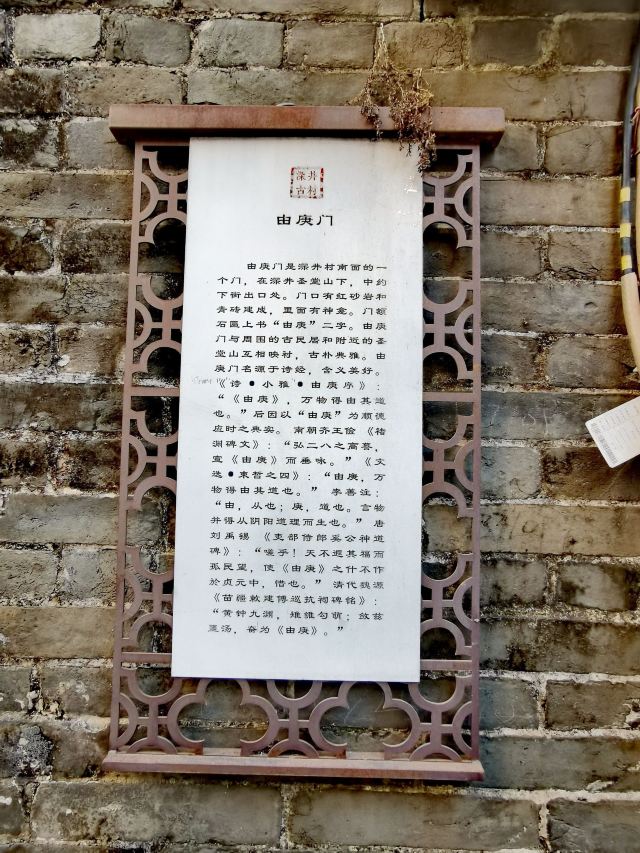 深井
古村
由庚门
由庚门是深井村南面的一
个门，在深井圣堂山下，中约
下街出口处。门口有红砂岩和
青砖建成，里面有神龛。门额
石匾上书“由庚”二字。由庚
门与周围的古民居和附近的圣
堂山互相映衬，古朴典雅。由
庚门名源于诗经，含义美好。
《诗●小雅●由庚序》：
“《由庚》，万物得由其道
也。”后因以“由庚”为顺德
应时之典实。南朝齐王俭《褚
渊碑文》：“弘二八之高謩，
宣《由庚》而垂咏。”《文
选●束晳之四》：“由庚，万
物得由其道也。”李善注：
“由，从也；庚，道也。言物
并得从阴阳道理而生也。”唐
刘禹锡《吏部侍郎奚公神道
碑》：“嗟乎！天不遐其福而
孤民望，使《由庚》之什不作
於贞元中，惜也。”清代魏源
《苗疆敕建傅巡抚祠碑铭》：
“黄钟九渊，雉雊勾萌；敛兹
汤，奋为《由庚》。”